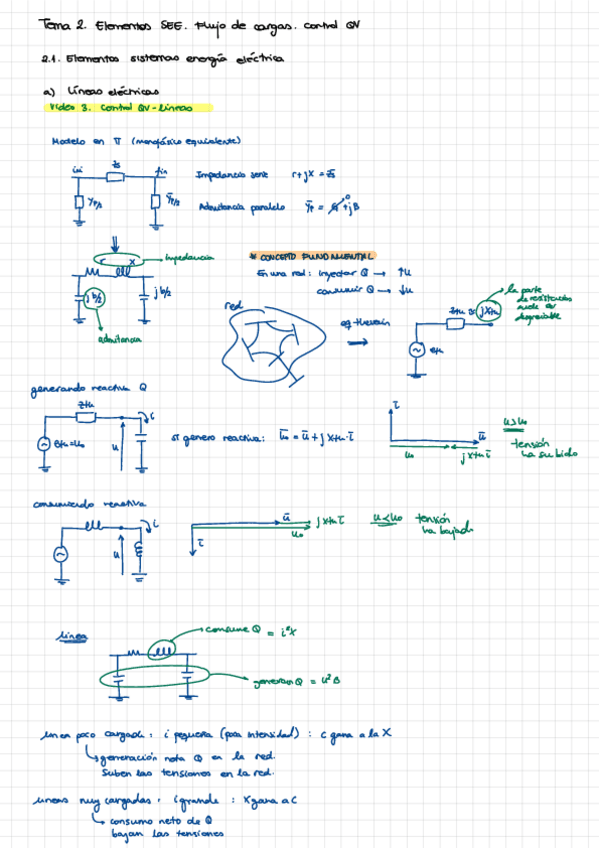 Tema 2. Elementos SEE. Flujo de cargas. Control QV
2.1. Elementos sistemas energía eléctrica
a) Líneas eléctricas
Video 3. Control QV - Líneas
Modelo en π (monofásico equivalente)
ini z̄s fin
Ȳp/2 Ȳp/2
Impedancia serie r+jx = z̄s
Admitancia paralelo Ȳp = G + jB
0
r x → impedancia
j b/2 j b/2
admitancia
* CONCEPTO FUNDAMENTAL
En una red: inyectar Q → ↑u
consumir Q → ↓u
red
eq thevenin
zth ≈ jXth
Eth
la parte
de resistencias
suele ser
despreciable
generando reactiva Q
zth
i
Eth = u₀
u
si genero reactiva: ū₀ = ū + j xth · ī
ī
ū
u₀
j xth ī
u>u₀
tensión
ha subido
consumiendo reactiva
i
u
ū
j xth ī
u₀
ī
u<u₀ tensión
ha bajado
línea
consume Q = i²X
generan Q = u²B
línea poco cargada: i pequeña (poca intensidad): C gana a la X
generación neta Q en la red.
Suben las tensiones en la red.
líneas muy cargadas, i grande: X gana a C
consumo neto de Q
bajan las tensiones